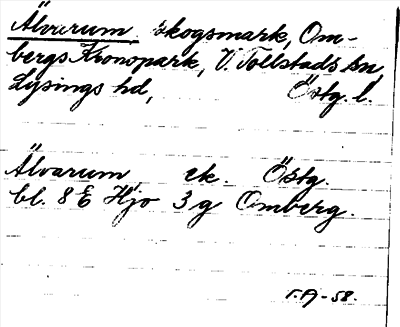 Älvarum skogsmark, Om-
bergs Kronopark, V. Tollstads sn,
Lysings hd, Östg. l.
Älvarum, ek. Östg.
bl. 8 E Hjo 3 g Omberg.
r.A-58.